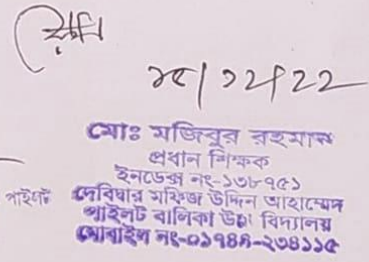 ১৫/১২/২২
মোঃ মজিবুর রহমান
প্রধান শিক্ষক
ইনডেক্স নং-১৩৮৭৫১
দেবিদ্বার মফিজ উদ্দিন আহাম্মেদ
পাইলট বালিকা উচ্চ বিদ্যালয়
মোবাইল নং-০১৭৪৪-২৩৪১১৫